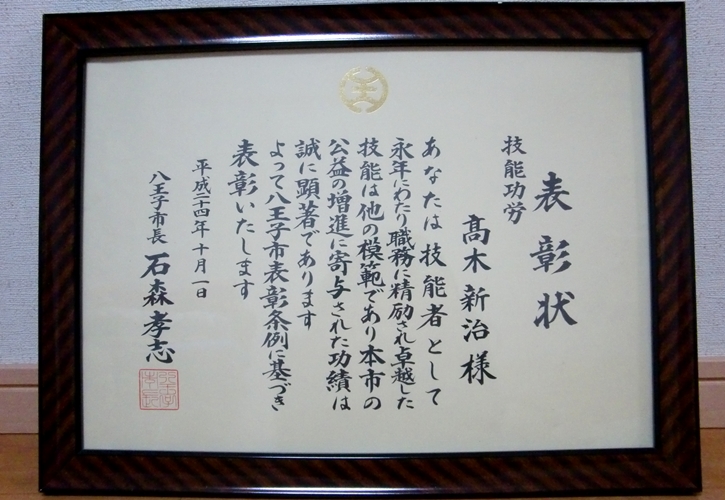 表彰状
技能功労
髙木新治様
あなたは技能者として
永年にわたり職務に精励され卓越した
技能は他の模範であり本市の
公益の増進に寄与された功績は
誠に顕著であります
よって八王子市表彰条例に基づき
表彰いたします
平成二十四年十月一日
八王子市長 石森孝志